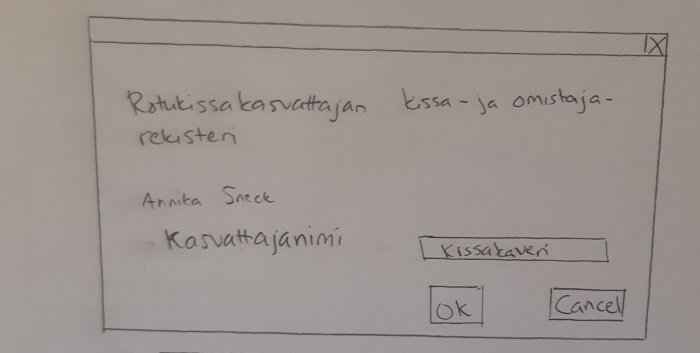 X
Rotukissakasvattajan kissa- ja omistaja-
rekisteri
Annika Sneck
Kasvattajanimi Kissakaveri
OK Cancel